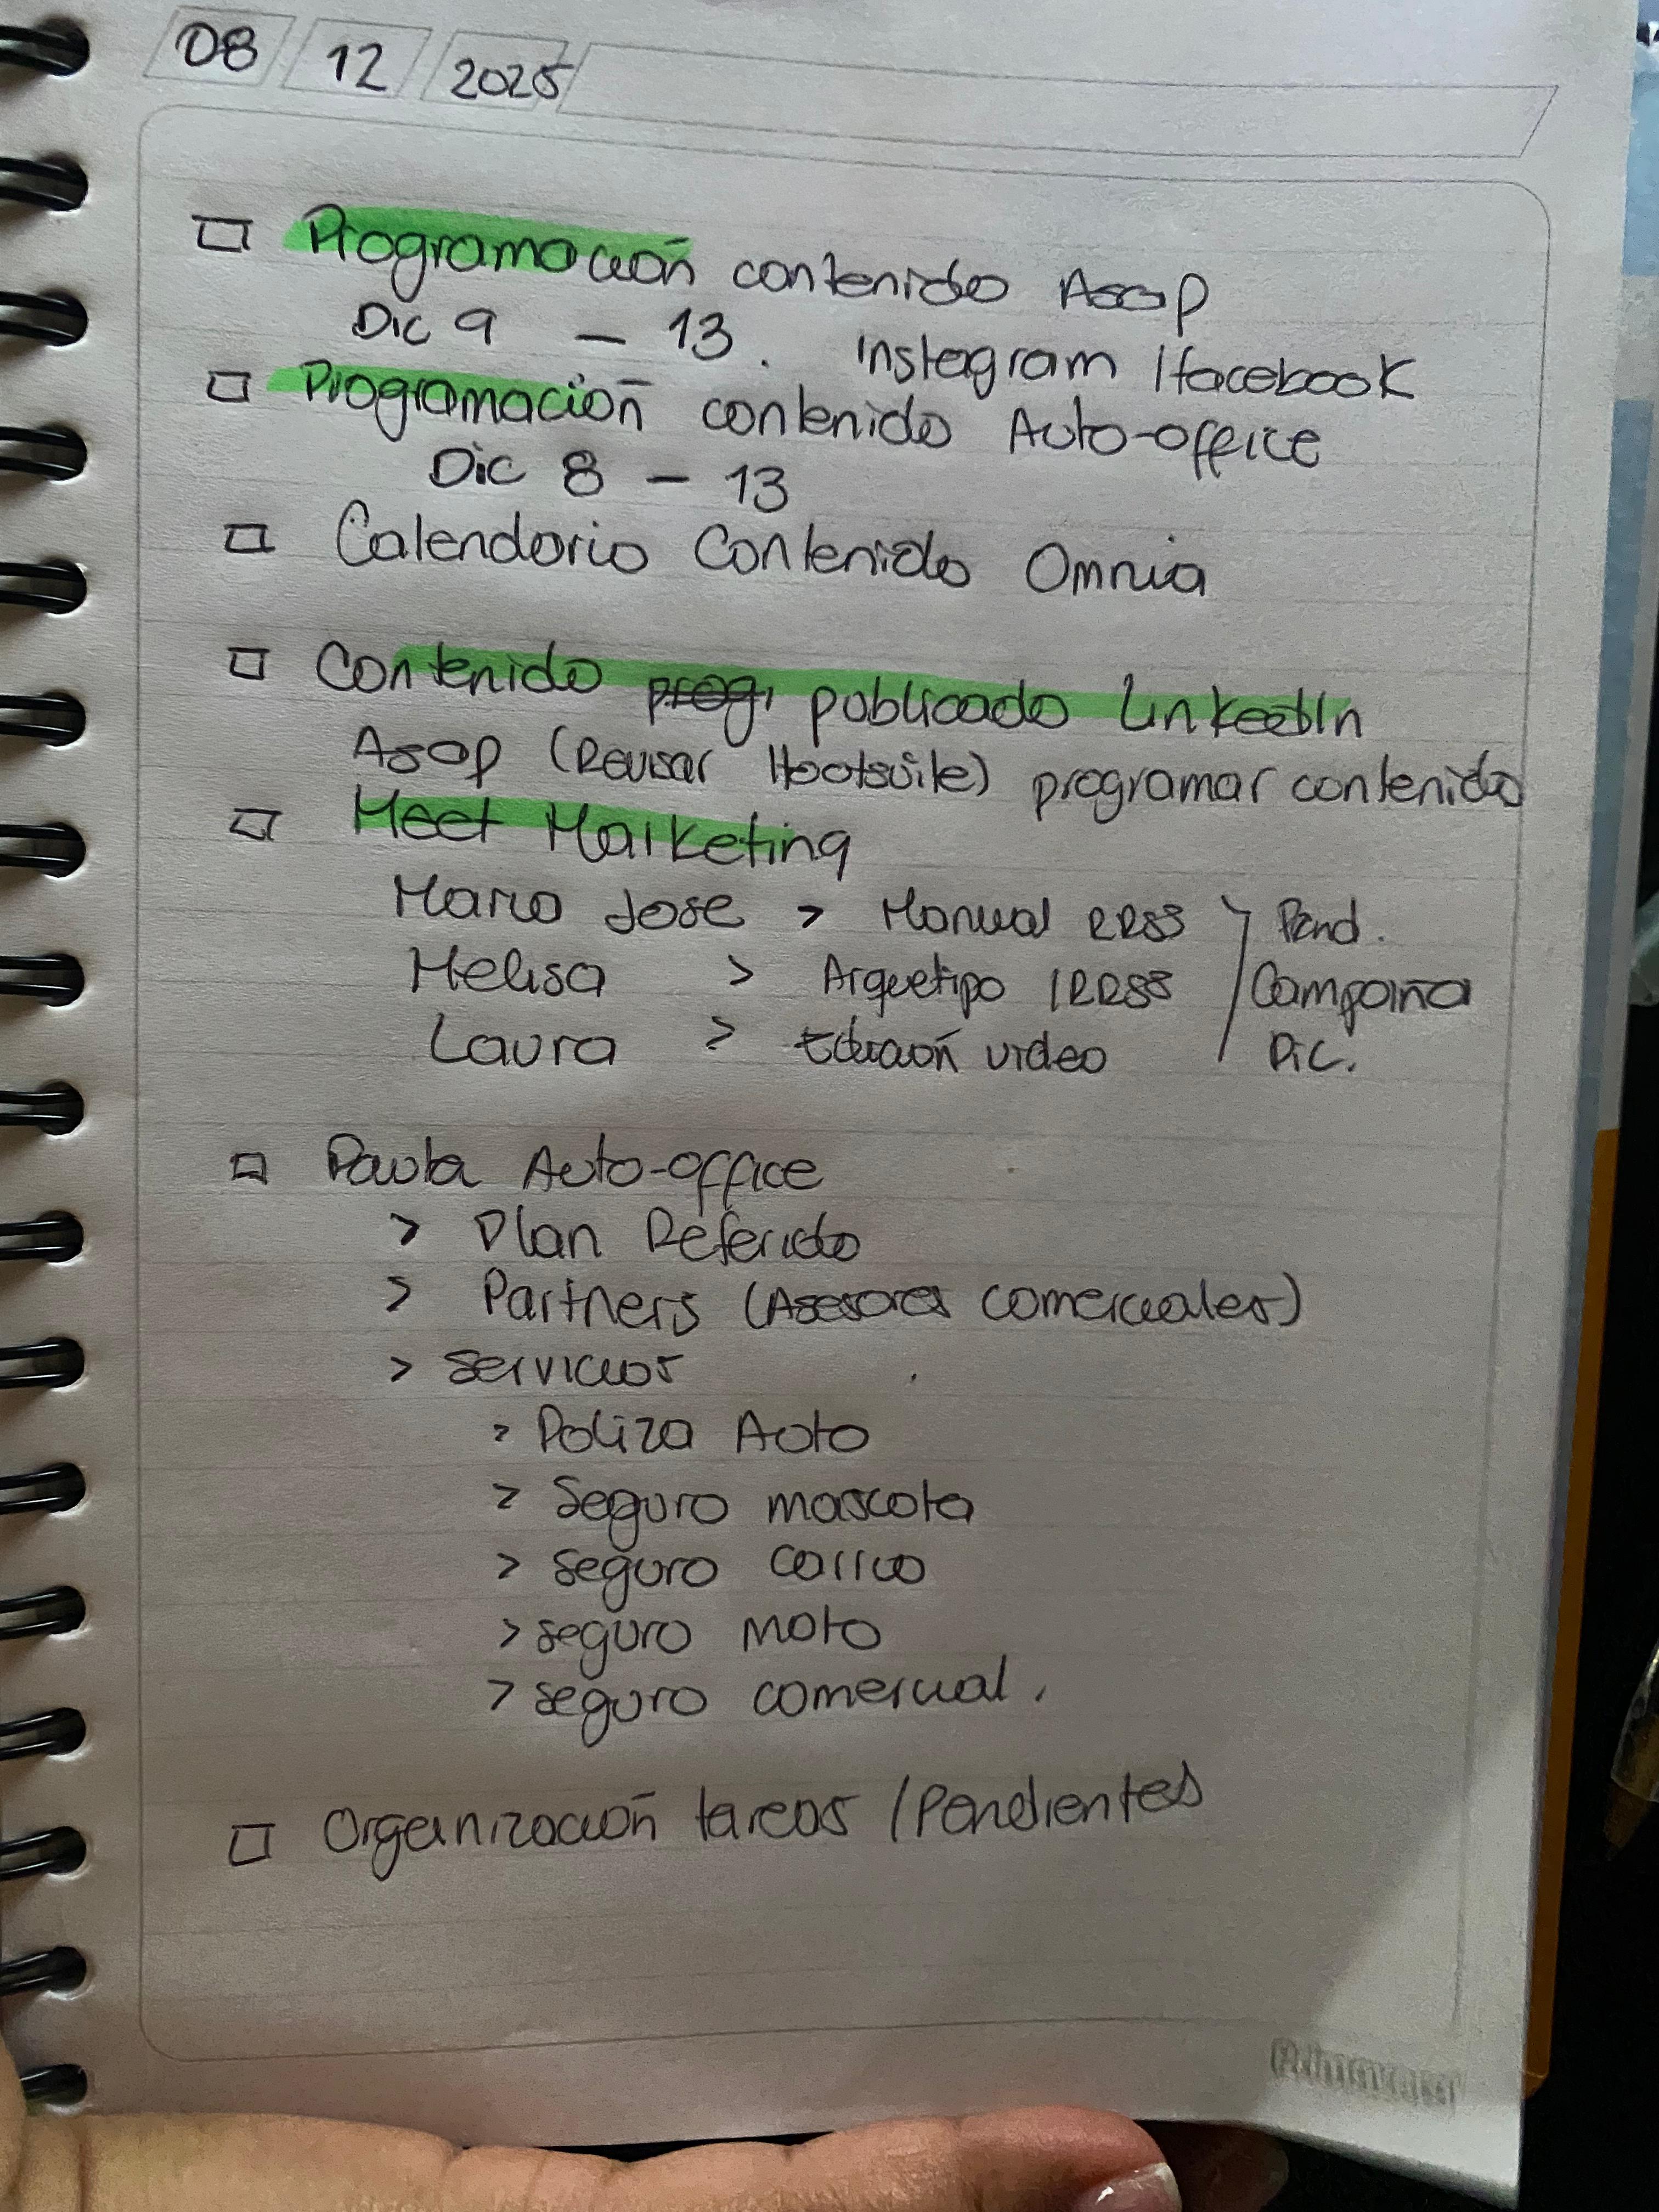 08 12 2025
Programación contenido Asap
Dic 9 - 13. Instagram / facebook
Programación contenido Auto-office
Dic 8 - 13
Calendario Contenido Omnia
Contenido prog. publicado LinkedIn
Asap (Revisar Hootsuite) programar contenido
Meet Marketing
Maria Jose > Manual RRSS Pend.
Melisa > Arquetipo / RRSS Campaña
Laura > Edición video Dic.
Pauta Auto-office
> Plan Referido
> Partners (Asesores comerciales)
> Servicios
> Poliza Auto
> Seguro mascota
> seguro carrro
> seguro moto
> seguro comercial.
Organización tareas / Pendientes
Primavera